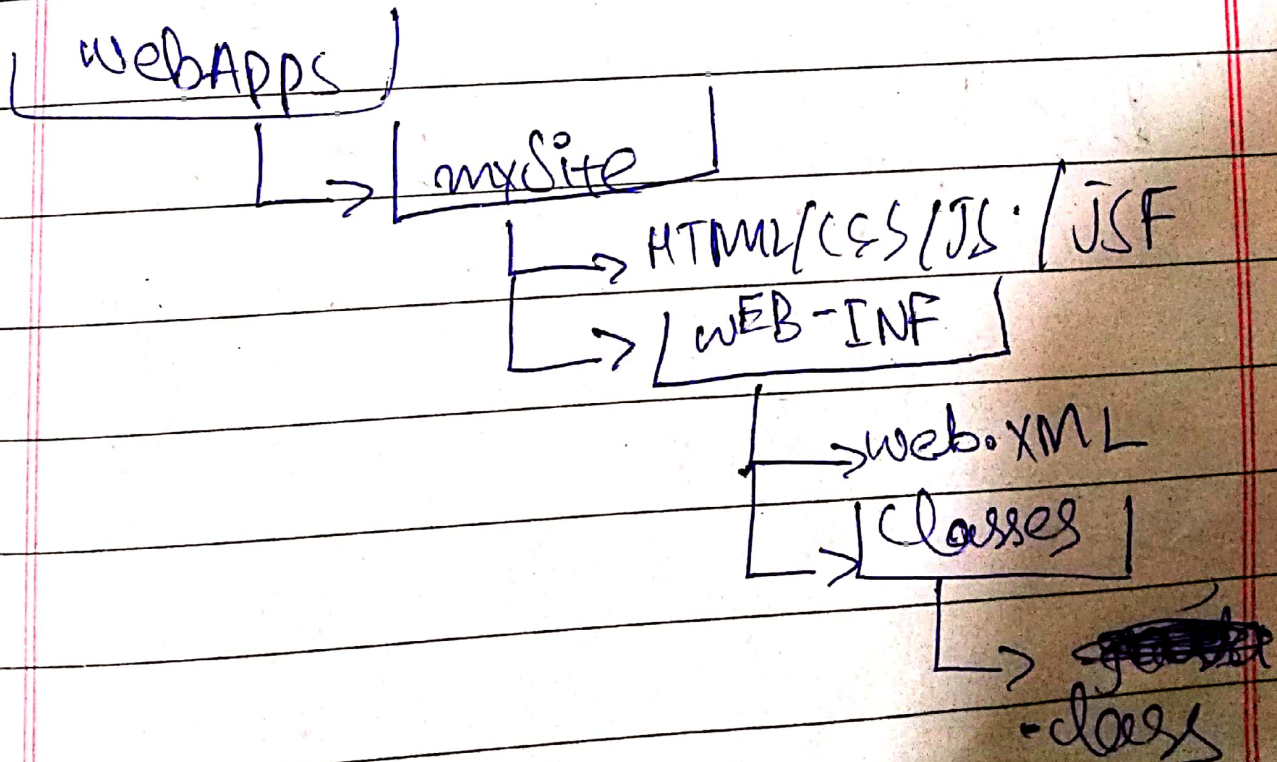 WebApps
mySite
HTML/CSS/JS./JSF
WEB-INF
web.XML
Classes
.class